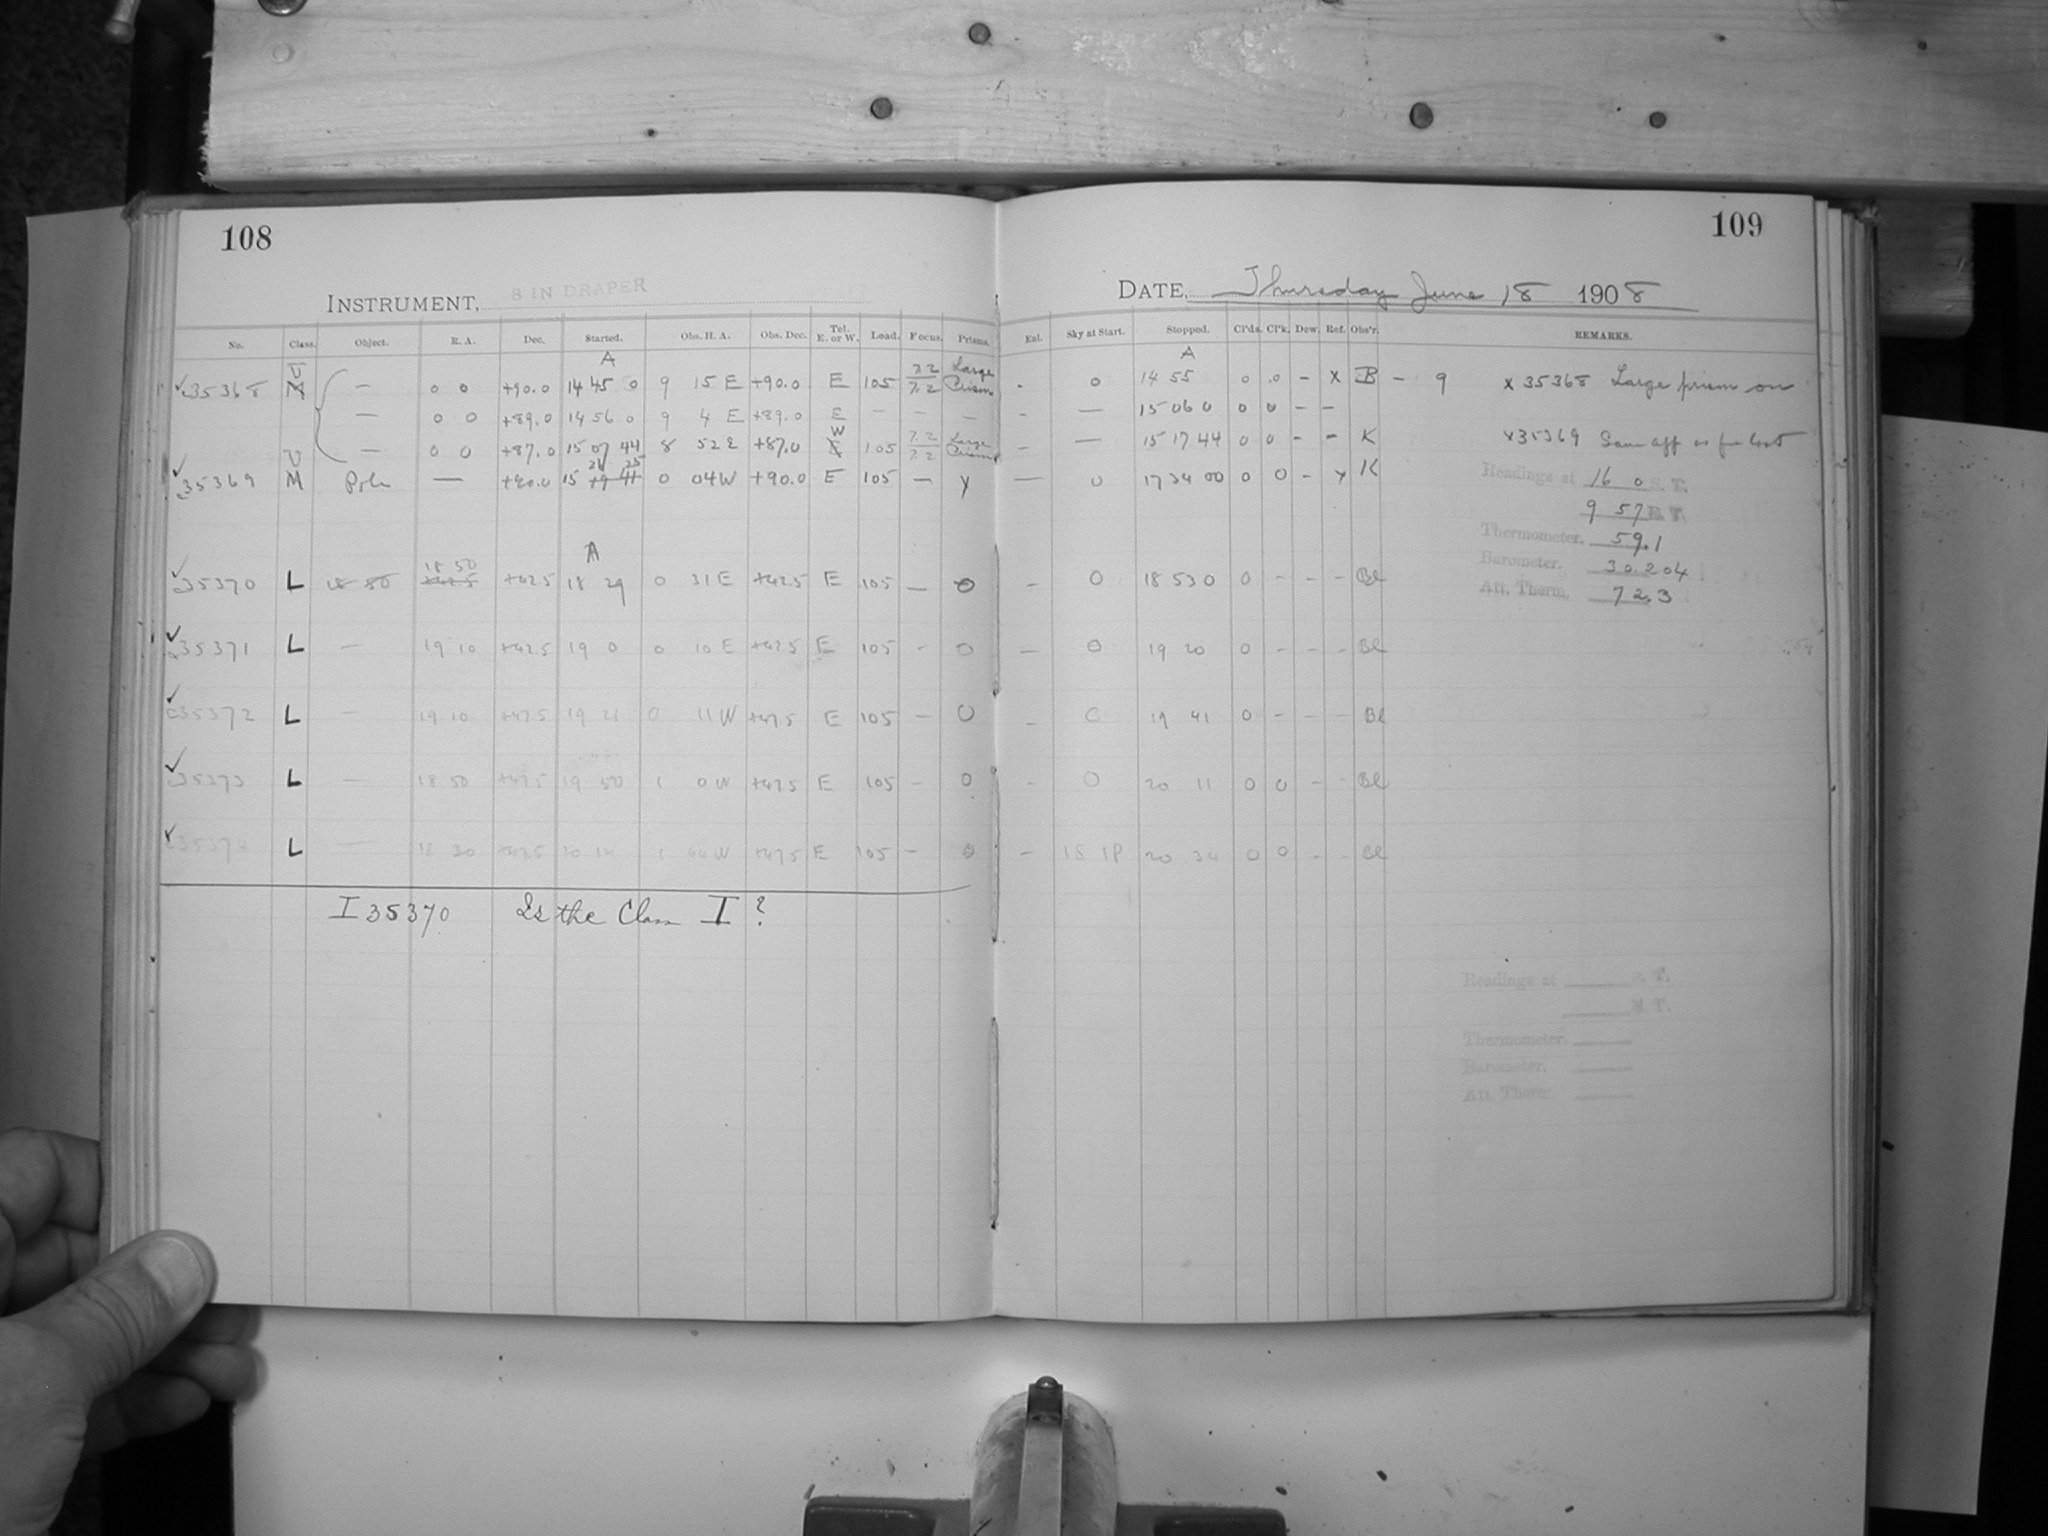 108
109
INSTRUMENT, 8 IN DRAPER
DATE, Thursday June 18 1908
No. Class. Object. R. A. Dec. Started. Obs. H. A. Obs. Dec. Tel. E. or W. Load. Focus. Prisms. Ext. Sky at Start. Stopped. Cl'ds. Cl'k. Dew. Ref. Obs'r. REMARKS.
A A
35368 M — 0 0 +90.0 14 45 0 9 15 E +90.0 E 105 7.2 7.2 Large Prism - 0 14 55 0 0 - X B - 9 x 35368 Large prism on
— 0 0 +89.0 14 56 0 9 4 E +89.0 E — — — - — 15 06 0 0 0 - -
— 0 0 +87.0 15 07 44 8 52 E +87.0 W 105 7.2 7.2 Large Prism - — 15 17 44 0 0 - - K x 35369
35369 M Pole — +90.0 15 0 04 W +90.0 E 105 — y — 0 17 34 00 0 0 - y K
Readings at 16 0 S. T.
9 57 E. T.
Thermometer. 59.1
Barometer. 30.204
Att. Therm. 72.3
A
35370 L 18 50 18 50 +42.5 18 29 0 31 E +42.5 E 105 — 0 - 0 18 53 0 0 - - - Bl
35371 L — 19 10 +42.5 19 0 0 10 E +42.5 E 105 - 0 — 0 19 20 0 - - - Bl
35372 L — 19 10 +47.5 19 21 0 11 W +47.5 E 105 — 0 - 0 19 41 0 - - - Bl
35373 L — 18 50 +47.5 19 50 1 0 W +47.5 E 105 - 0 - 0 20 11 0 0 - - Bl
35374 L — 18 30 +47.5 20 14 1 44 W +47.5 E 105 - 0 - 1S 1P 20 34 0 0 - - Bl
I 35370 Is the Class I ?
Readings at S. T.
M. T.
Thermometer.
Barometer.
Att. Therm.